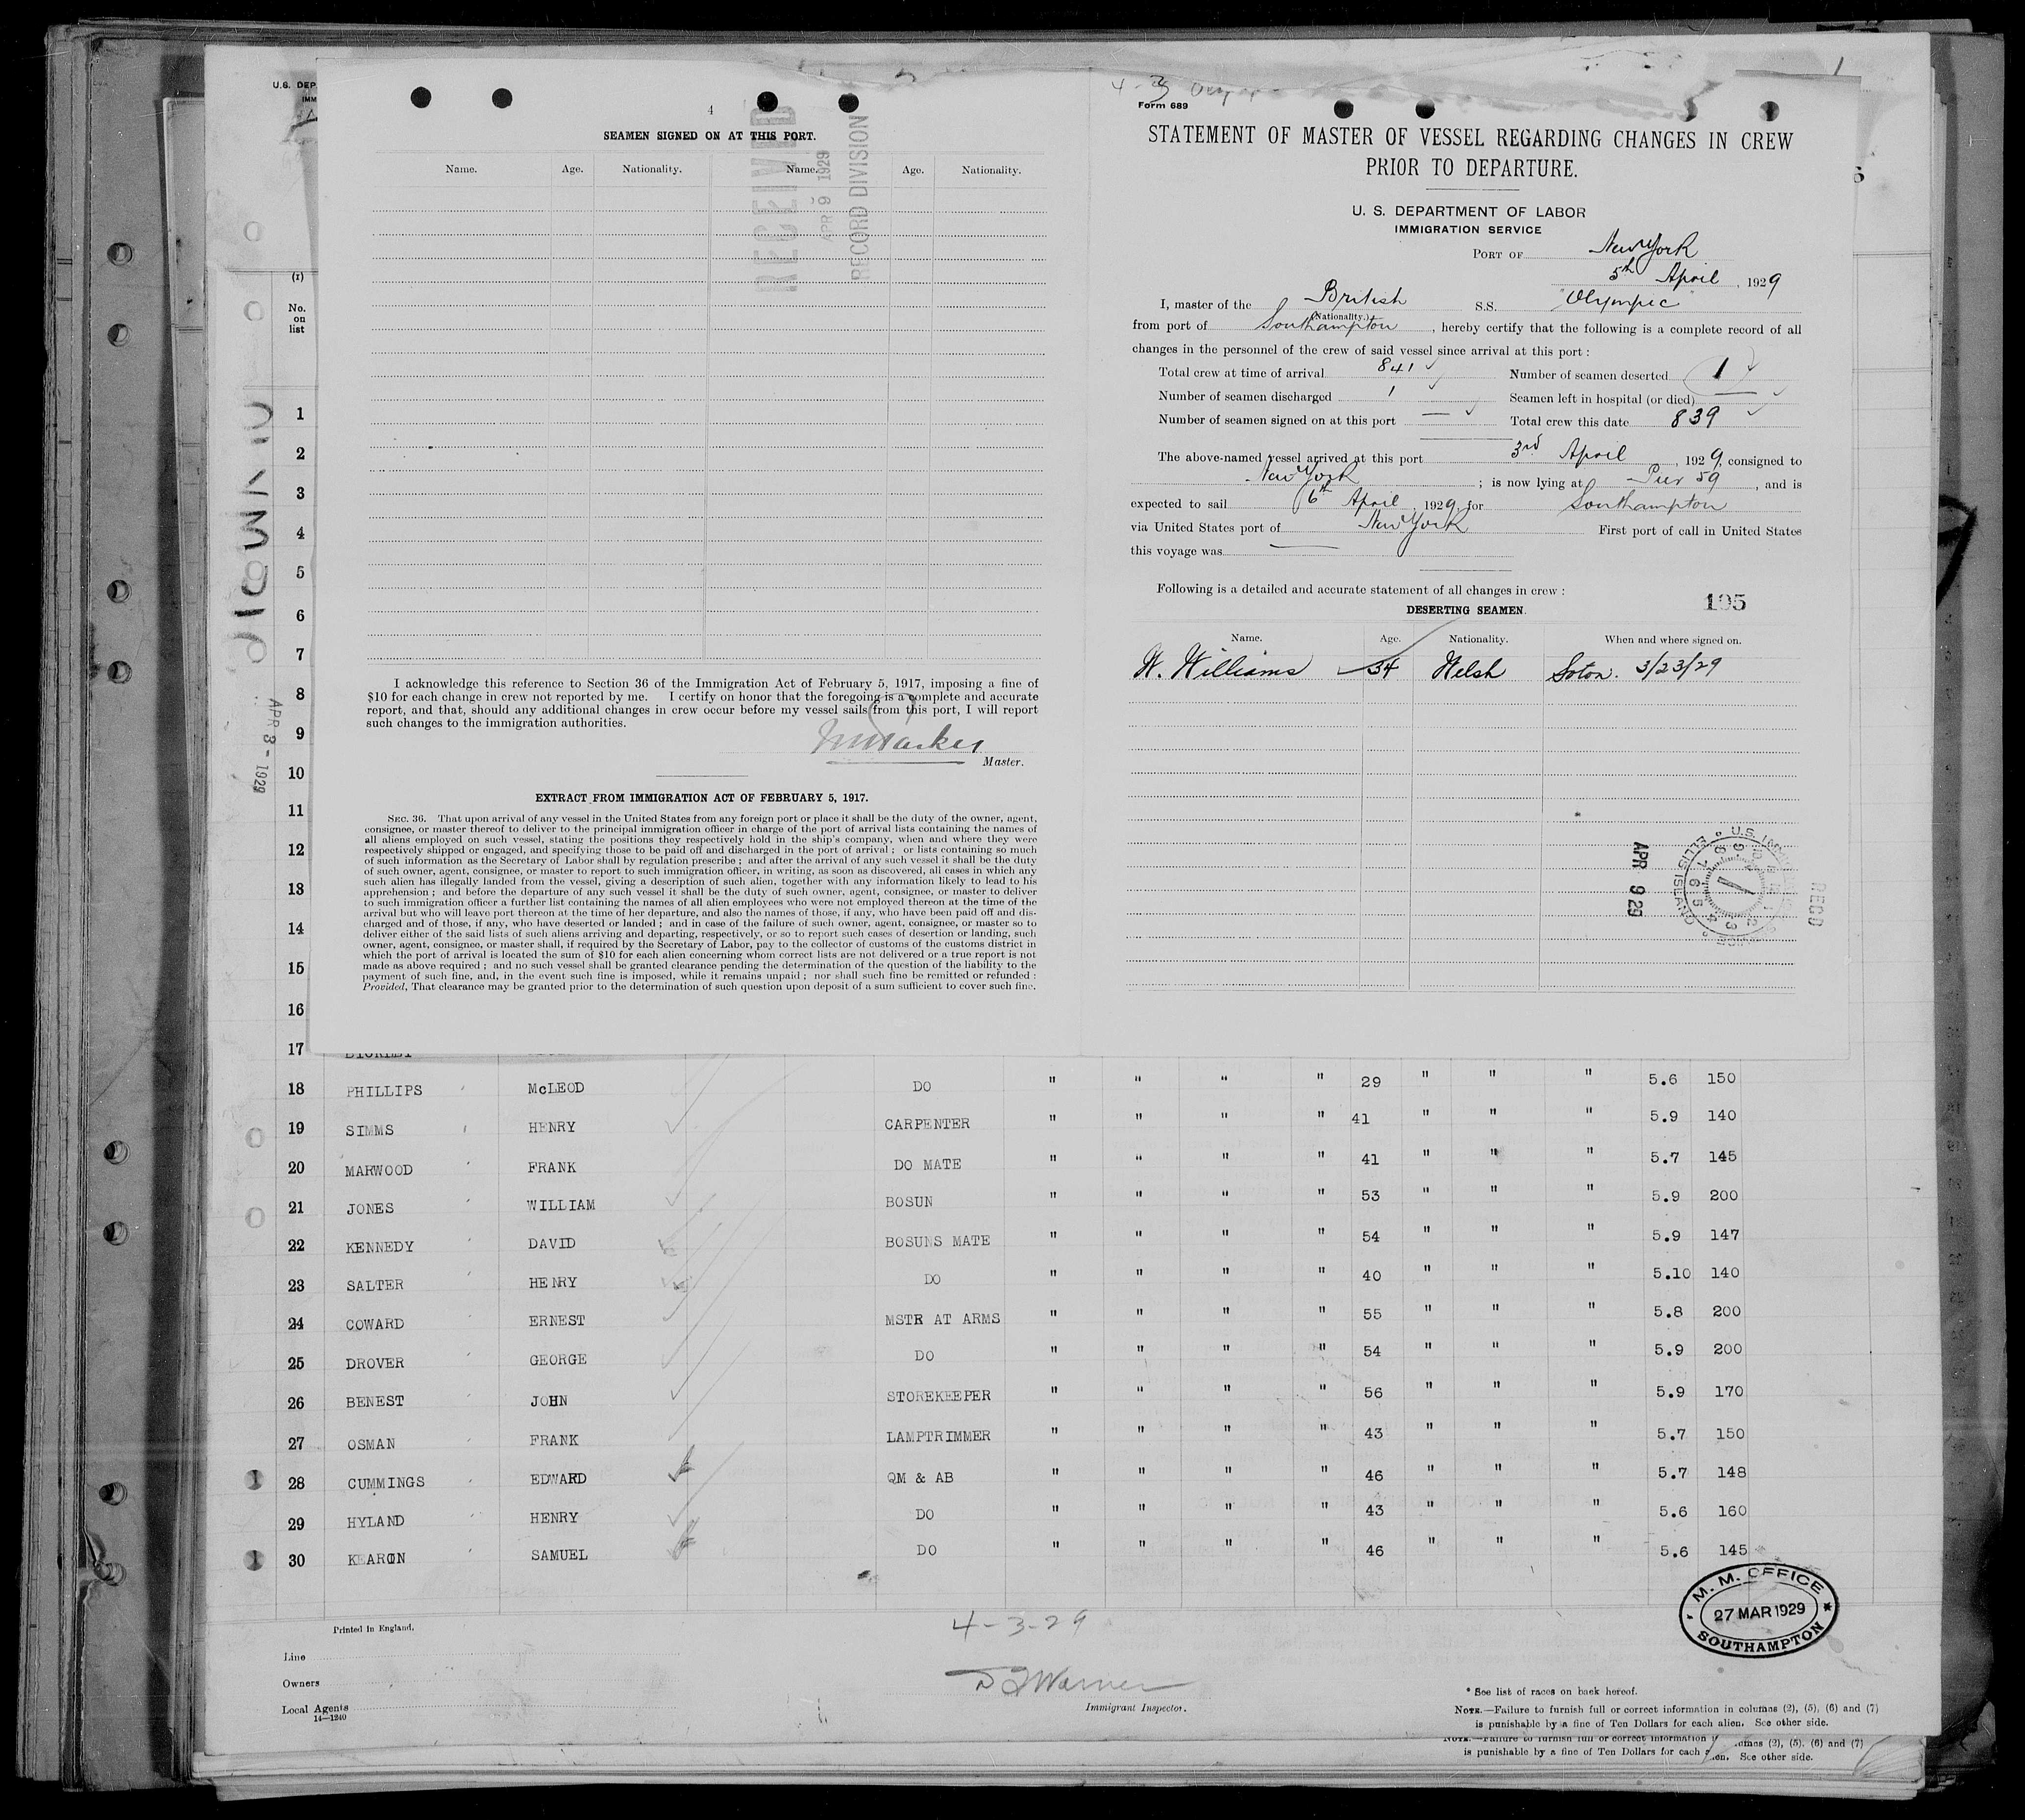 U.S. DEP
IMM
(1)
No.
on
list
OLYMPIC
APR 3 - 1929
4
SEAMEN SIGNED ON AT THIS PORT.
Name. Age. Nationality. Name. Age. Nationality.
RECEIVED
APR 9 1929
RECORD DIVISION
I acknowledge this reference to Section 36 of the Immigration Act of February 5, 1917, imposing a fine of
$10 for each change in crew not reported by me. I certify on honor that the foregoing is a complete and accurate
report, and that, should any additional changes in crew occur before my vessel sails from this port, I will report
such changes to the immigration authorities.
Master.
EXTRACT FROM IMMIGRATION ACT OF FEBRUARY 5, 1917.
SEC. 36. That upon arrival of any vessel in the United States from any foreign port or place it shall be the duty of the owner, agent,
consignee, or master thereof to deliver to the principal immigration officer in charge of the port of arrival lists containing the names of
all aliens employed on such vessel, stating the positions they respectively hold in the ship's company, when and where they were
respectively shipped or engaged, and specifying those to be paid off and discharged in the port of arrival; or lists containing so much
of such information as the Secretary of Labor shall by regulation prescribe; and after the arrival of any such vessel it shall be the duty
of such owner, agent, consignee, or master to report to such immigration officer, in writing, as soon as discovered, all cases in which any
such alien has illegally landed from the vessel, giving a description of such alien, together with any information likely to lead to his
apprehension; and before the departure of any such vessel it shall be the duty of such owner, agent, consignee, or master to deliver
to such immigration officer a further list containing the names of all alien employees who were not employed thereon at the time of the
arrival but who will leave port thereon at the time of her departure, and also the names of those, if any, who have been paid off and dis-
charged and of those, if any, who have deserted or landed; and in case of the failure of such owner, agent, consignee, or master so to
deliver either of the said lists of such aliens arriving and departing, respectively, or so to report such cases of desertion or landing, such
owner, agent, consignee, or master shall, if required by the Secretary of Labor, pay to the collector of customs of the customs district in
which the port of arrival is located the sum of $10 for each alien concerning whom correct lists are not delivered or a true report is not
made as above required; and no such vessel shall be granted clearance pending the determination of the question of the liability to the
payment of such fine, and, in the event such fine is imposed, while it remains unpaid; nor shall such fine be remitted or refunded:
Provided, That clearance may be granted prior to the determination of such question upon deposit of a sum sufficient to cover such fine.
4-3
Form 689
STATEMENT OF MASTER OF VESSEL REGARDING CHANGES IN CREW
PRIOR TO DEPARTURE.
U. S. DEPARTMENT OF LABOR
IMMIGRATION SERVICE
PORT OF New York
5th April, 1929
I, master of the British S.S. "Olympic"
(Nationality.)
from port of Southampton, hereby certify that the following is a complete record of all
changes in the personnel of the crew of said vessel since arrival at this port:
Total crew at time of arrival 841 Number of seamen deserted 1
Number of seamen discharged 1 Seamen left in hospital (or died) —
Number of seamen signed on at this port — Total crew this date 839
The above-named vessel arrived at this port 3rd April, 1929, consigned to
New York; is now lying at Pier 59, and is
expected to sail 6th April, 1929, for Southampton
via United States port of New York First port of call in United States
this voyage was —
Following is a detailed and accurate statement of all changes in crew:
195
DESERTING SEAMEN.
Name. Age. Nationality. When and where signed on.
W. Williams 34 Welsh Soton. 3/23/29
APR 9 29
U.S. IMMIGRATION SERVICE ELLIS ISLAND
RECD
1
2
3
4
5
6
7
8
9
10
11
12
13
14
15
16
17
18 PHILLIPS McLEOD DO " " " " 29 " " " 5.6 150
19 SIMMS HENRY CARPENTER " " " " 41 " " " 5.9 140
20 MARWOOD FRANK DO MATE " " " " 41 " " " 5.7 145
21 JONES WILLIAM BOSUN " " " " 53 " " " 5.9 200
22 KENNEDY DAVID BOSUNS MATE " " " " 54 " " " 5.9 147
23 SALTER HENRY DO " " " " 40 " " " 5.10 140
24 COWARD ERNEST MSTR AT ARMS " " " " 55 " " " 5.8 200
25 DROVER GEORGE DO " " " " 54 " " " 5.9 200
26 BENEST JOHN STOREKEEPER " " " " 56 " " " 5.9 170
27 OSMAN FRANK LAMPTRIMMER " " " " 43 " " " 5.7 150
28 CUMMINGS EDWARD QM & AB " " " " 46 " " " 5.7 148
29 HYLAND HENRY DO " " " " 43 " " " 5.6 160
30 KEARON SAMUEL DO " " " " 46 " " " 5.6 145
M. M. OFFICE
27 MAR 1929
SOUTHAMPTON
Printed in England.
4-3-29
Line
Owners
Local Agents
14—1240
Warner
Immigrant Inspector.
* See list of races on back hereof.
NOTE.—Failure to furnish full or correct information in columns (2), (5), (6) and (7)
is punishable by a fine of Ten Dollars for each alien. See other side.
NOTE.—Failure to furnish full or correct information columns (2), (5), (6) and (7)
is punishable by a fine of Ten Dollars for each alien. See other side.